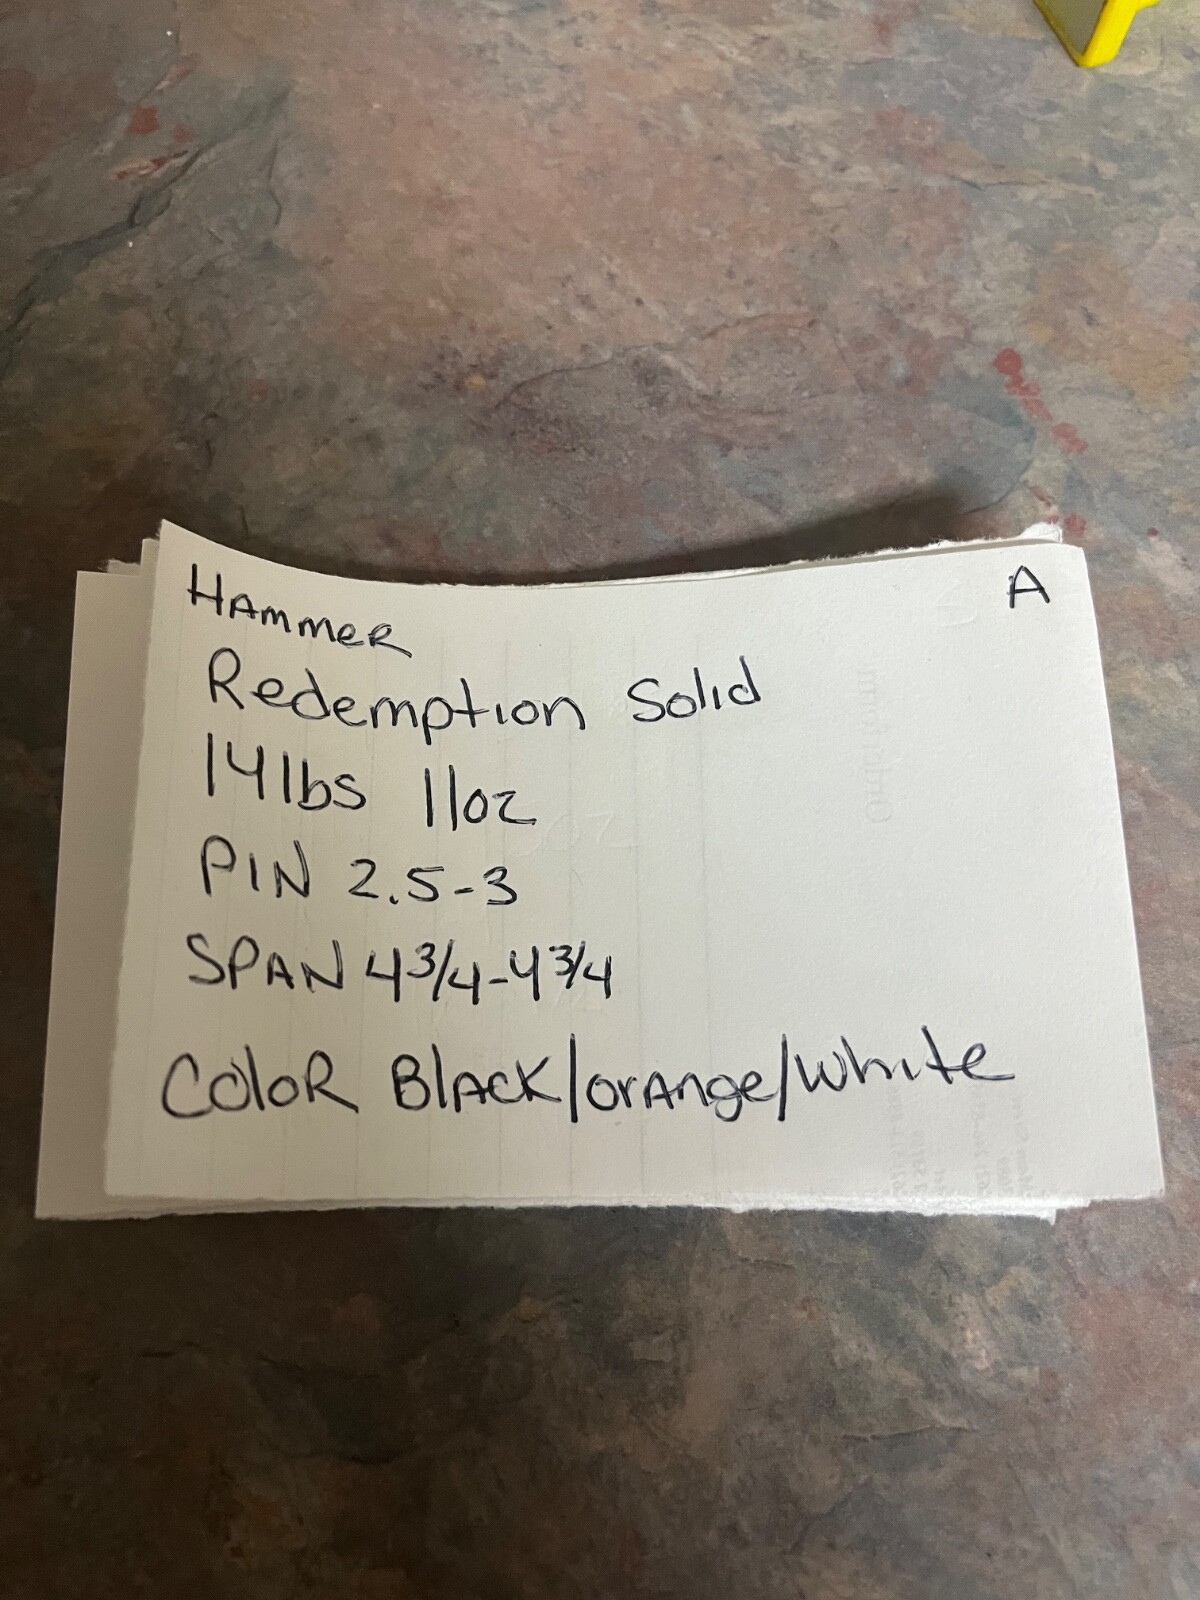 HAmmeR A
Redemption Solid
14lbs 11oz
PIN 2.5-3
SPAN 4 3/4-4 3/4
ColoR BlAcK/orAnge/white